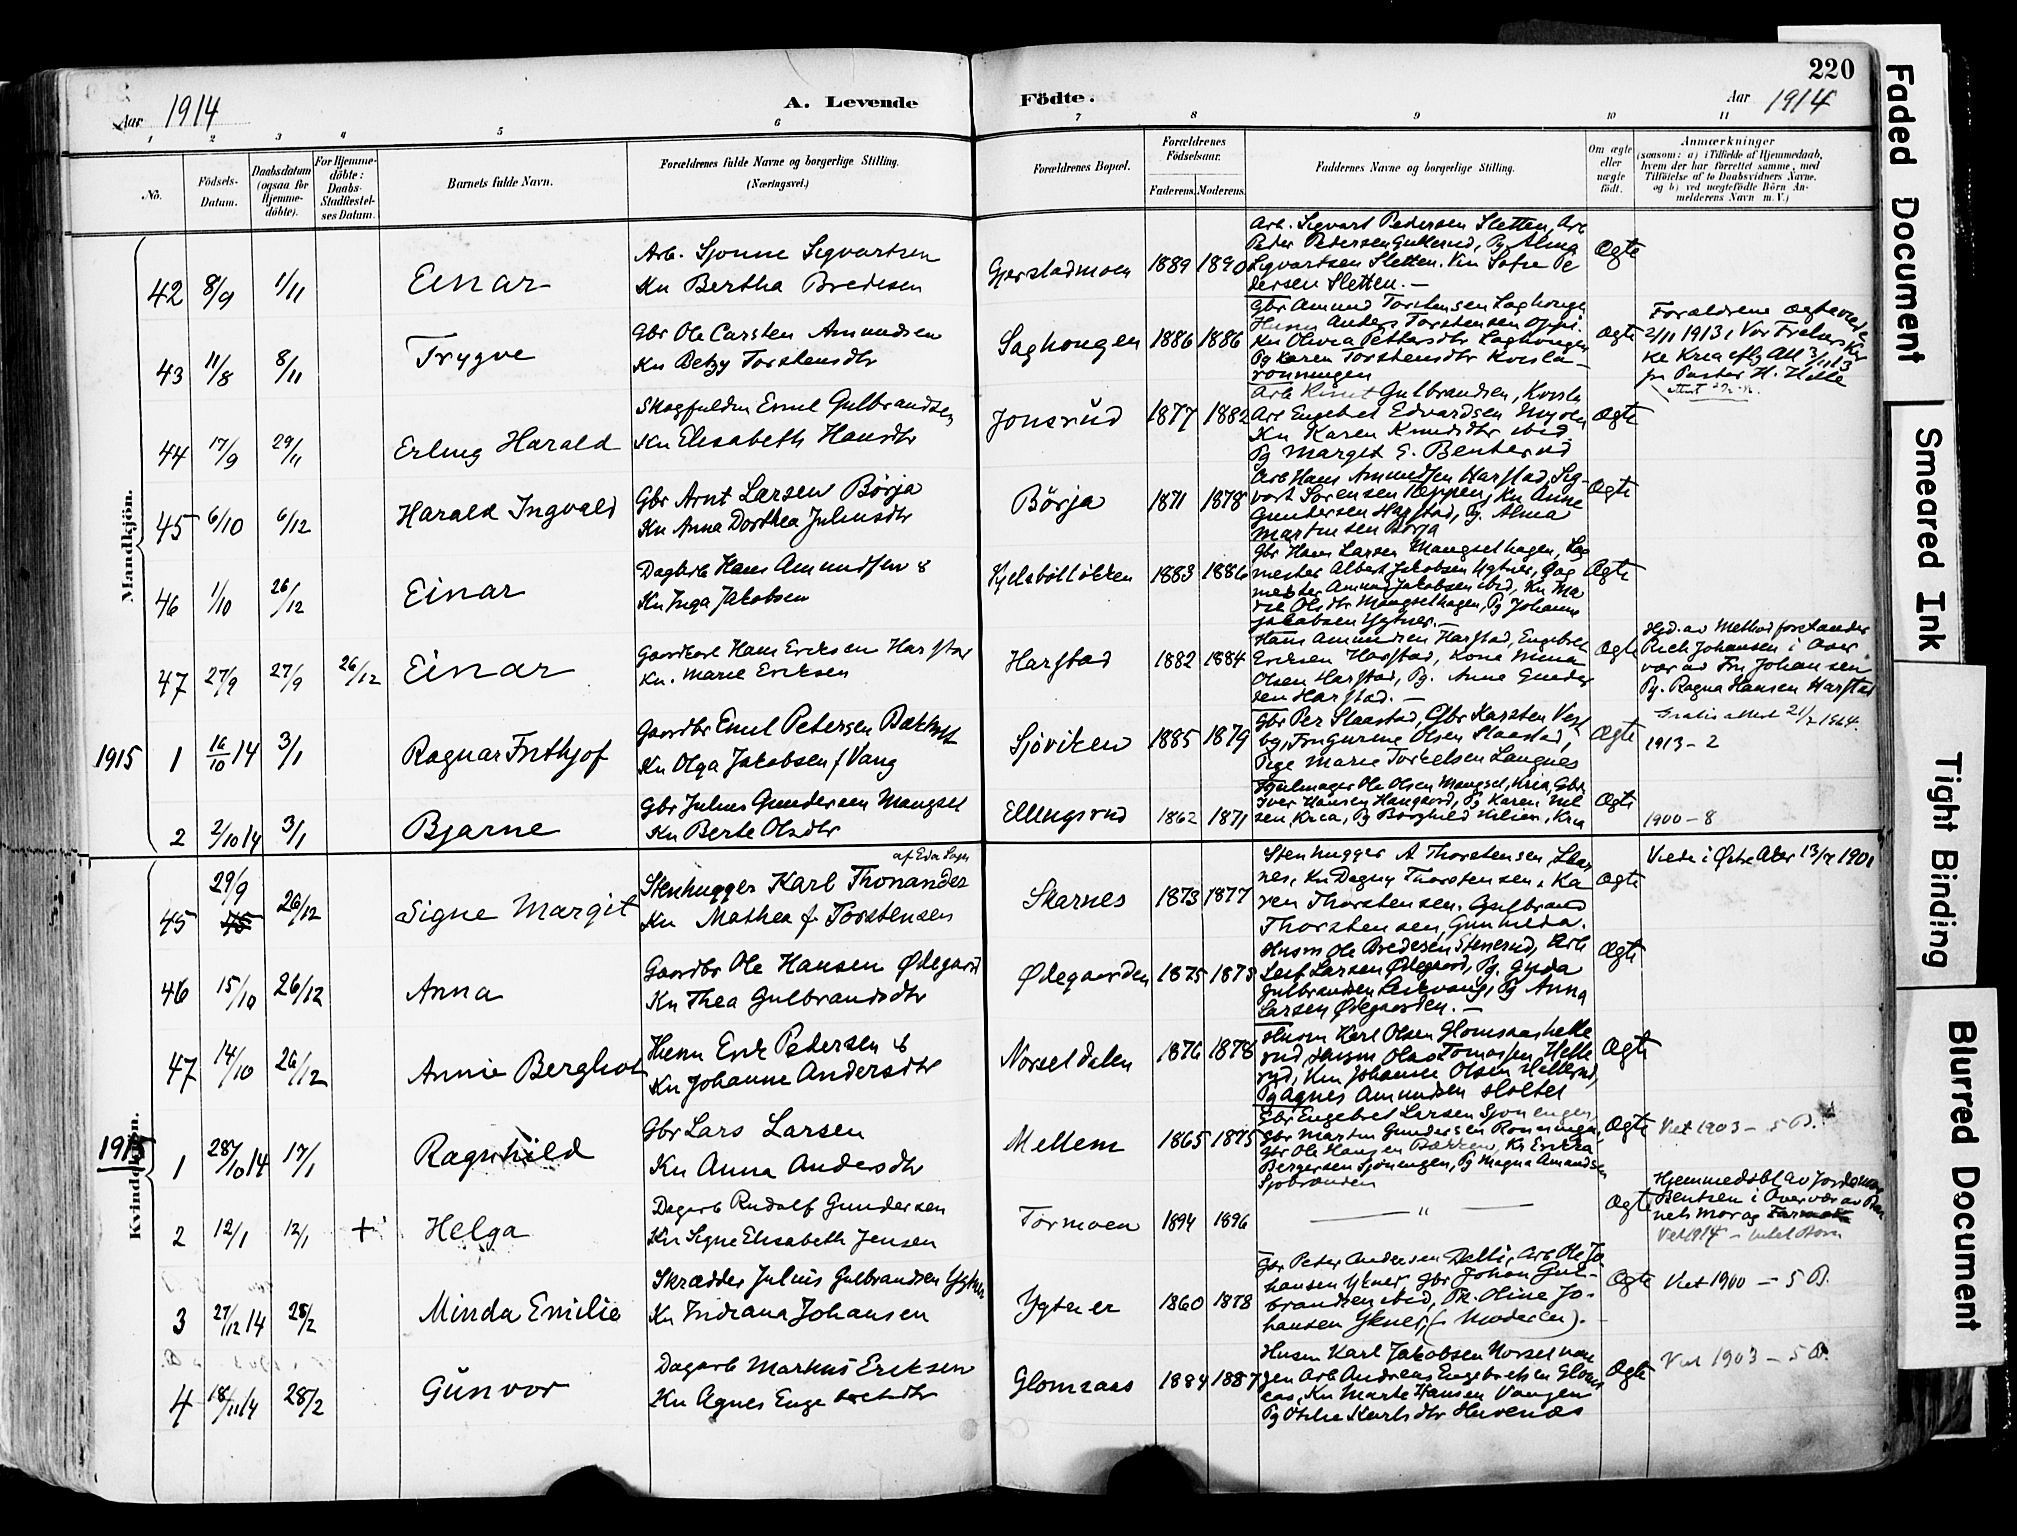 220
Aar 1914
A. Levende
Födte.
Aar 1914
1 2 3 4 5 6 7 8 9 10 11
No.
Födsels-Datum.
Daabsdatum (ogsaa for Hjemme-döbte).
For Hjemme-döbte: Daabs-Stadfæstel-ses Datum.
Barnets fulde Navn.
Forældrenes fulde Navne og borgerlige Stilling.
(Næringsvei.)
Forældrenes Bopæl.
Forældrenes Födselsaar.
Faderens. Moderens.
Faddernes Navne og borgerlige Stilling.
Om ægte eller uægte födt.
Anmærkninger
(saasom: a) i Tilfælde af Hjemmedaab,
hvem der har forrettet samme, med
Tilföielse af to Daabsvidners Navne,
og b) ved uægtefödte Börn An-
melderens Navn m. V.)
Mandkjön.
42 8/9 1/11 Einar
Arb. Sjonne Sigvartsen
Kn Bertha Bredesen
Gjerstadmoen 1889 1890
Arb. Sigvart Pedersen Sletten, Arb
Peder Pedersen Gullerud, Pg Alma
Sigvartsen Sletten. Kn Sofie Pe
dersen Sletten. —
Ægte
43 11/8 8/11 Trygve
Gbr Ole Carsten Amundsen
Kn Betzy Torstensdtr
Saghougen 1886 1886
Gbr Amund Torstensen Saghougen
Husm Anders Torstensen
Kn Olivia Pettersdtr Saghougen
Pg Karen Torstensdtr Korsla-
rønningen
Ægte
Forældrene ægteviede
2/11 1913 i Vor Frelsers Kir
ke Kria Att 3/11 13
Pastor H. Hille
44 17/9 29/11 Erling Harald
Skogfuldm Emil Gulbrandsen
Kn Elisabeth Hansdtr
Jonsrud 1877 1882
Arb Knut Gulbrandsen, Korsla
Arb Engebret Edvardsen Myren
Kn Karen Knudsdtr ibid
Pg Margit E. Benterud
Ægte
45 6/10 6/12 Harald Ingvald
Gbr Arnt Larsen Børja
Kn Anna Dorthea Juliusdtr
Børja 1871 1878
Arb Hans Amundsen Harstad, Sig-
vart Sørensen Teppen, Kn Anne
Gundersen Harstad, Pg. Alma
Martinsen Børja
Ægte
46 1/10 26/12 Einar
Dagarb Hans Amundsen &
Kn Inga Jakobsen
1883 1886
Gbr Hans Larsen Mangselhagen, Sag
mester Albert Jakobsen Ygtner, Sag
mester Amund Jakobsen ibid, Kn Ma
rte Olsdtr Mangselhagen, Pg Johanne
Jakobsen Ygtner. —
Ægte
47 27/9 27/9 26/12 Einar
Gaardkarl Hans Eriksen Harstad
Kn. Marie Eriksen
Harstad 1882 1884
Hans Amundsen Harstad, Engebret
Eriksen Harstad, Kone Mina
Olsen Harstad, Pg. Anne Gunder
sen Harstad. —
Ægte
Hjd. av Methodforstander
Johansen i Over
vær av Fru Johansen
Pg. Ragna Hansen Harstad
Gratis attest 21/7 1964.
1915 1 16/10 14 3/1 Ragnar Frithjof
Gaardbr Emil Petersen
Kn Olga Jakobsen f Vang
Sjøviken 1885 1879
Gbr Per Slaastad, Gbr Karsten Vest
by, Fru Gurine Olsen Slaastad,
Pige Marie Torkelsen Langnes
Ægte
1913 – 2
2 2/10 14 3/1 Bjarne
Gbr Julius Gundersen Mangsel
Kn Berte Olsdtr
Ellingsrud 1862 1871
Ole Olsen Mangsel, Kria, Gbr
Iver Hansen Haugaard, Pg Karen Nil
sen, Kria, Pg Borghild Nilsen, Kria
Ægte
1900 – 8
Kvindekjön.
45 29/9 26/12 Signe Margit
af Eda Sogn
Stenhugger Karl Thonander
Kn Mathea f. Torstensen
Skarnes 1873 1877
Stenhugger A Thorstensen, Skar
nes, Kn Dagny Thorstensen, Ka
ren Thorstensen. Gulbrand
Thorstensen, Gunhilda.
Ægte
Viede i Østre Aker 13/7 1901
46 15/10 26/12 Anna
Gaardbr Ole Hansen Ødegaard
Kn Thea Gulbrandsdtr
Ødegaarden 1875 1873
Husm Ole Bredesen Stenerud, Arb
Leif Larsen Ødegaard, Pg. Gyda
Gulbrandsen, Pg Anna
Larsen Ødegaarden. —
Ægte
47 14/10 26/12 Annie Berghot
Husm Erik Pedersen &
Kn Johanne Andersdtr
Norseldalen 1876 1878
Husm Karl Olsen Glomsaas Helle
rud, Husm Olaf Tomassen Helle
rud, Kn Johanne Olsen Hellerud,
Pg Agnes Amundsen Holtet
Ægte
1915 1 28/10 14 17/1 Ragnhild
Gbr Lars Larsen
Kn Anna Andersdtr
Mellem 1865 1875
Gbr Engebret Larsen Sjønengen
Gbr Martin Gundersen Rønningen,
Gbr Ole Hansen Bakken, Kn Erikka
Bergersen Sjønengen, Pg Magna Amundsen
Sjøbraaden
Ægte
Viet 1903 – 5 B.
2 12/1 12/1 + Helga
Dagarb Rudolf Gundersen
Kn Signe Elisabeth Jensen
Tormoen 1894 1896
— " —
Ægte
Hjemmedøbt av Jordemor
Bentsen i Overvær av Bar
nets Mor og
Viet 1914 – intet Barn
3 27/12 14 28/2 Minda Emilie
Skrædder Julius Gulbrandsen Ygtner
Kn Indiana Johansen
Ygtner 1860 1878
Gbr Peter Andersen Dalli, Arb Ole Jo
hansen Ykner, Gbr Johan Gul-
brandsen ibid, Pk. Oline Jo-
hansen Ykner, (Moderen).
Ægte
Viet 1900 – 5 B.
4 18/11 14 28/2 Gunvor
Dagarb Markus Eriksen
Kn Agnes Engebretsdtr
Glomsaas 1884 1887
Husm Karl Jakobsen Norsel van
gen Arb Andreas Engebretsen Gloms
aas, Kn Marte Hansen Vangen
Pg Othilie Karlsdtr
Ægte
Viet 1903 – 5 B.
Faded Document
Smeared Ink
Tight Binding
Blurred Document